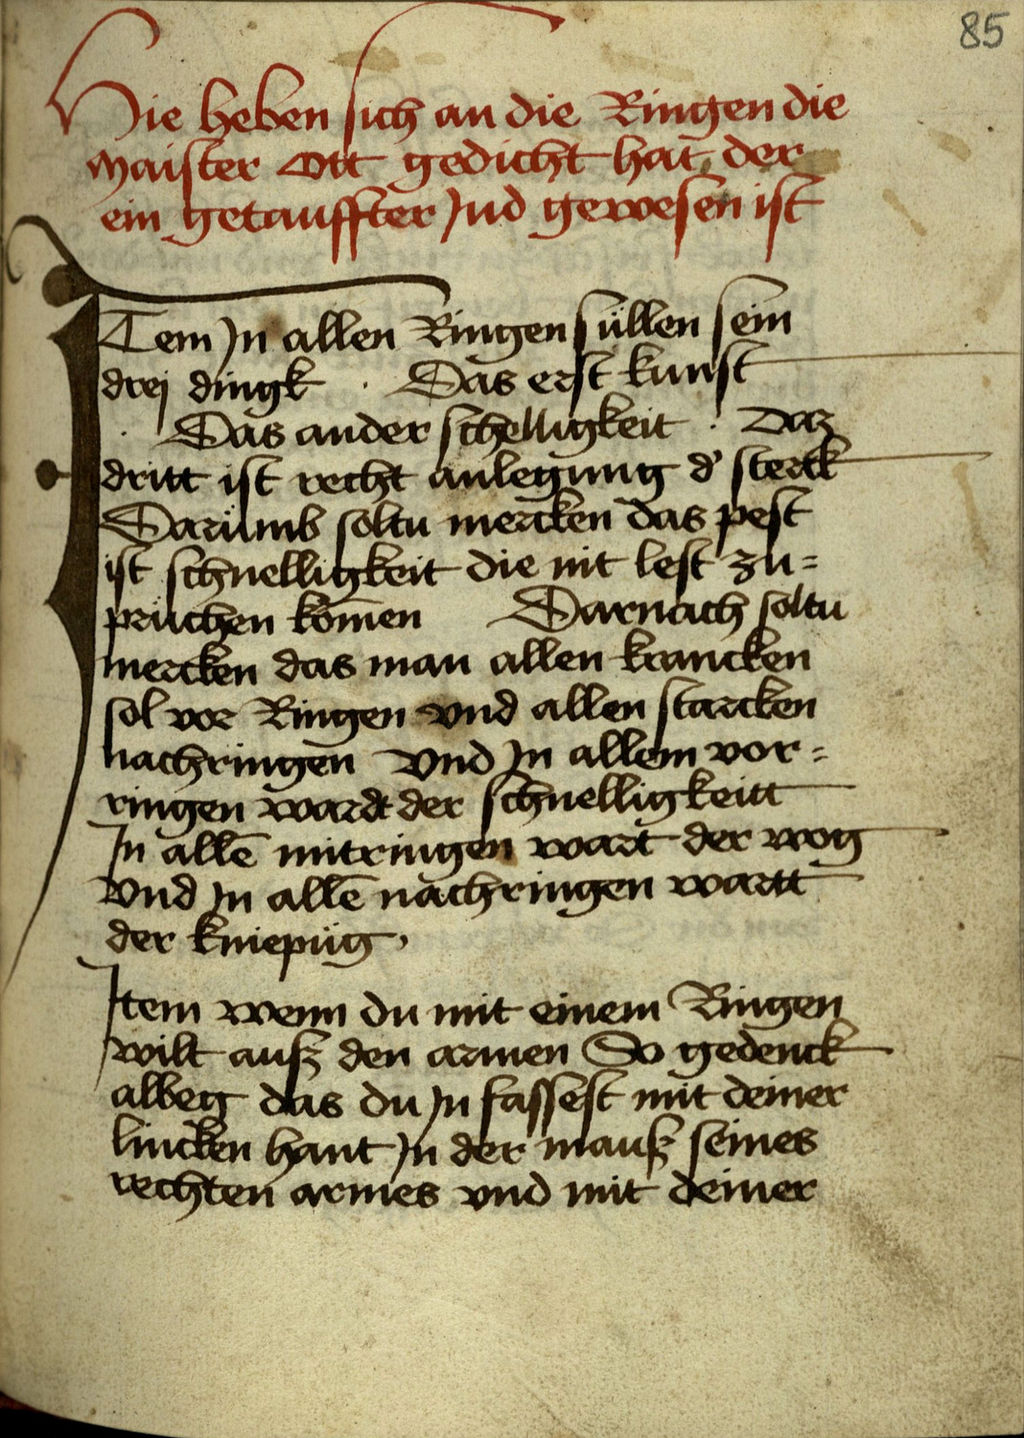 85
Hie heben sich an die Ringen die
Maister Ott gedicht hat der
ein getauffter Jud gewesen ist
ITem Jn allen Ringen süllen sein
dreÿ dingk · Das erst kunst
· Das ander schelligkeit · Daz
dritt ist recht anlegung d' sterck
Darümb soltu mercken das pest
ist schnelligkeit die nit lest zu=
prüchen kom̄en Darnach soltu
mercken das man allen krancken
sol vor Ringen vnd allen starcken
nachringen Vnd Jn allem vor=
ringen wardt der schnelligkeitt
Jn allē mitringen wart der wog
Vnd Jn allē nachringen wartt
der kniepüg ·
Jtem wenn du mit einem Ringen
wilt ausß den armen So gedenck
albeg das du Jn fassest mit deiner
lincken hant Jn der mauß seines
rechten armes vnd mit deiner